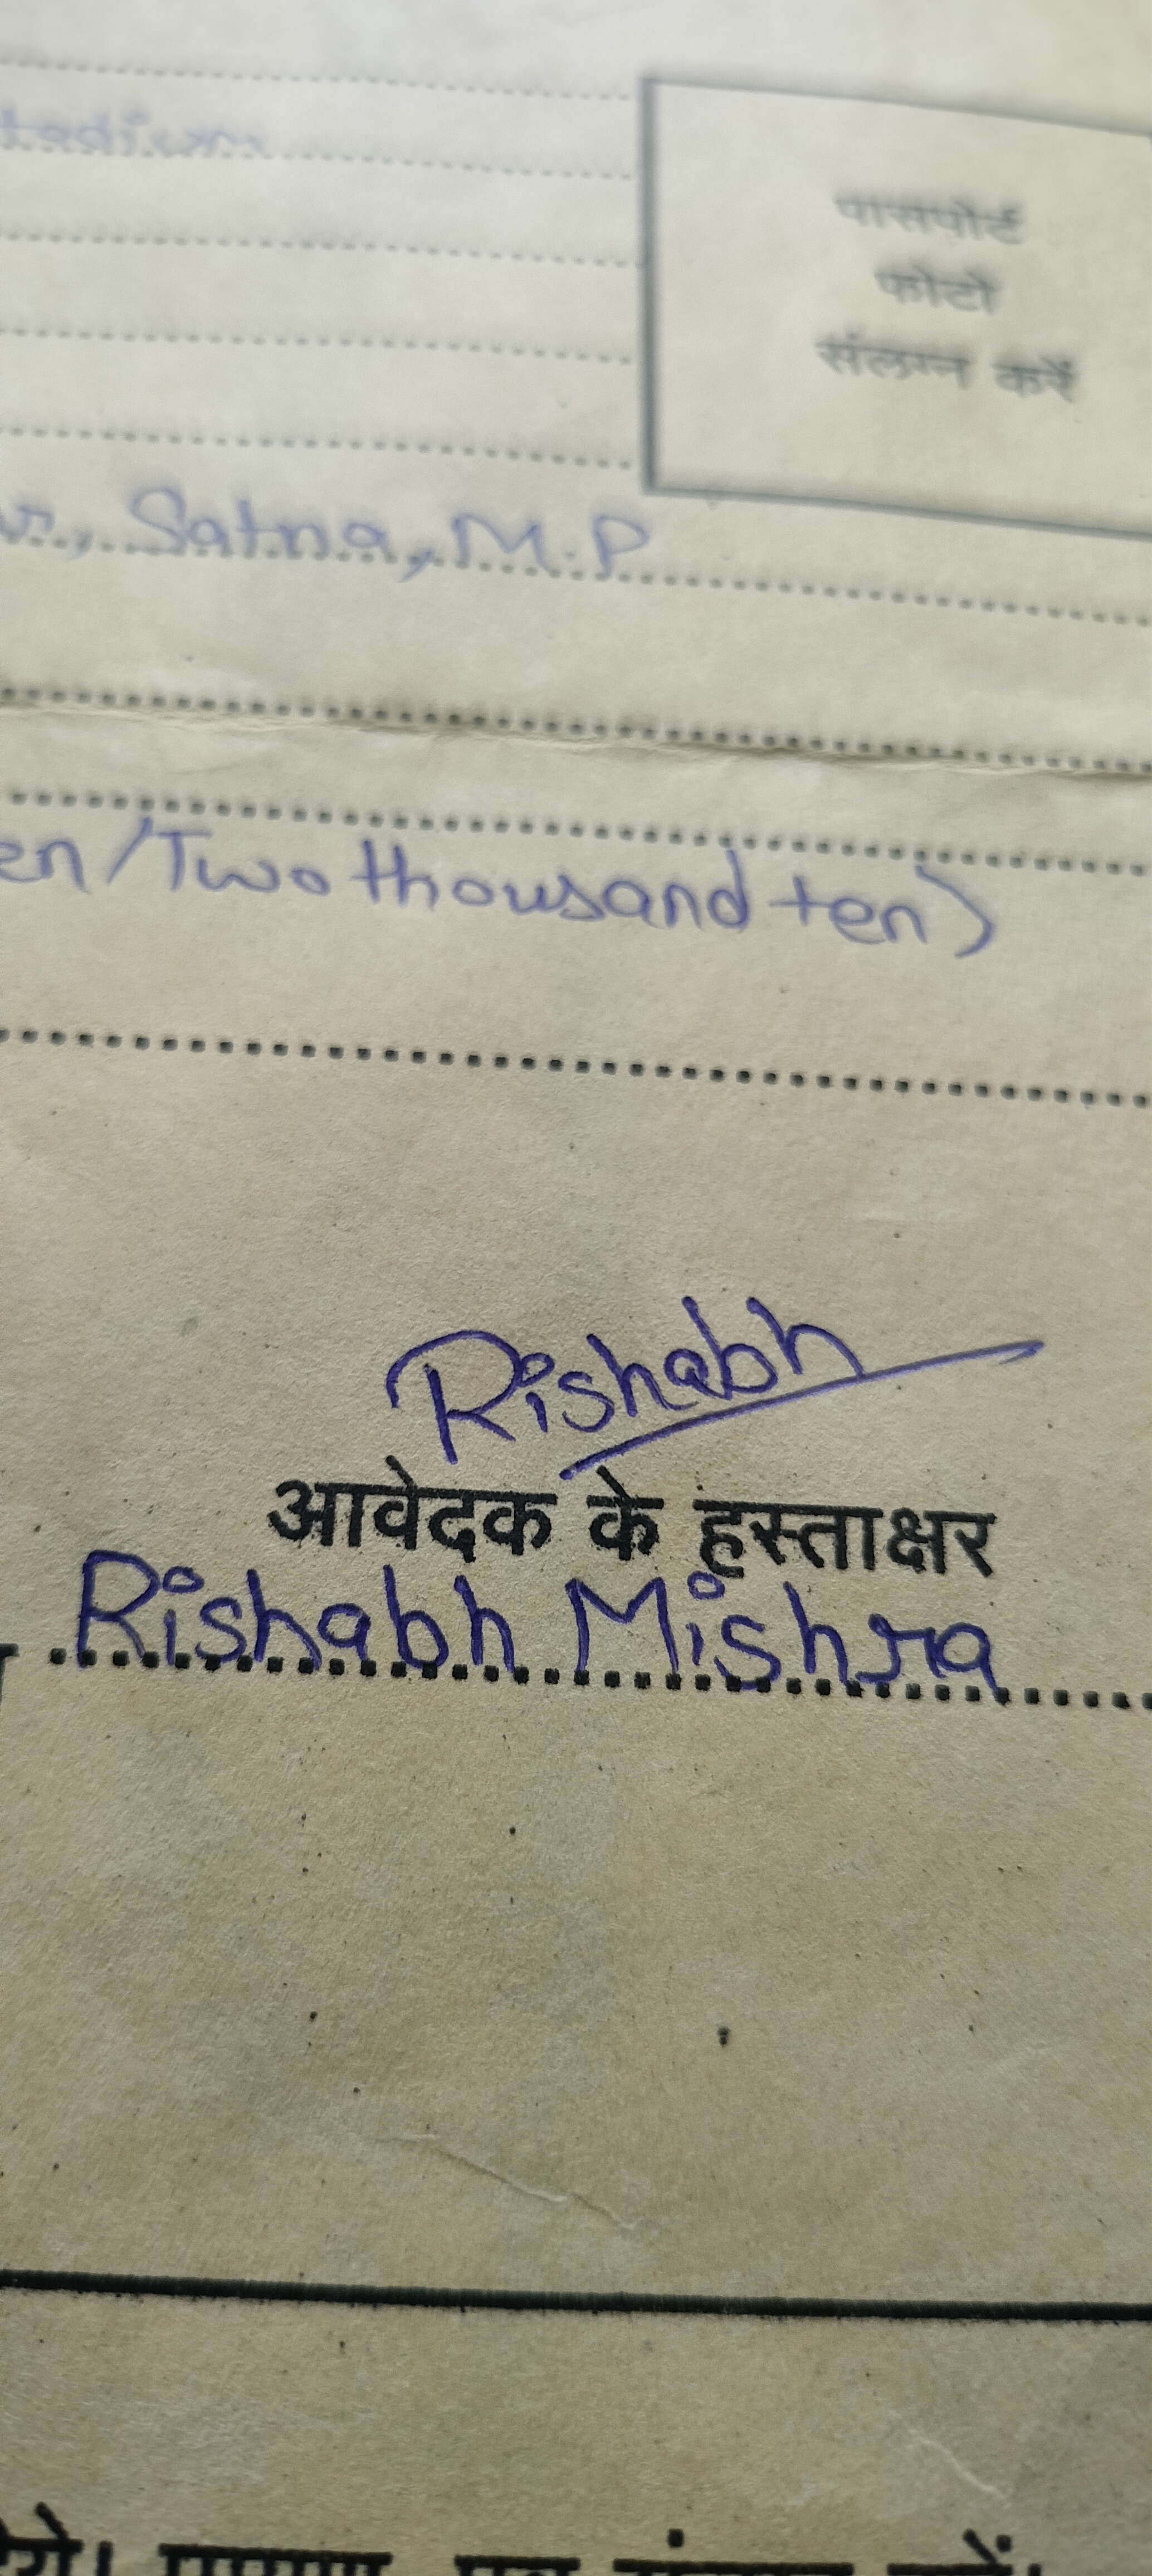 पासपोर्ट
फोटो
संलग्न करें
Satna, M.P
en/Two thousand ten)
Rishabh
आवेदक के हस्ताक्षर
Rishabh Mishra